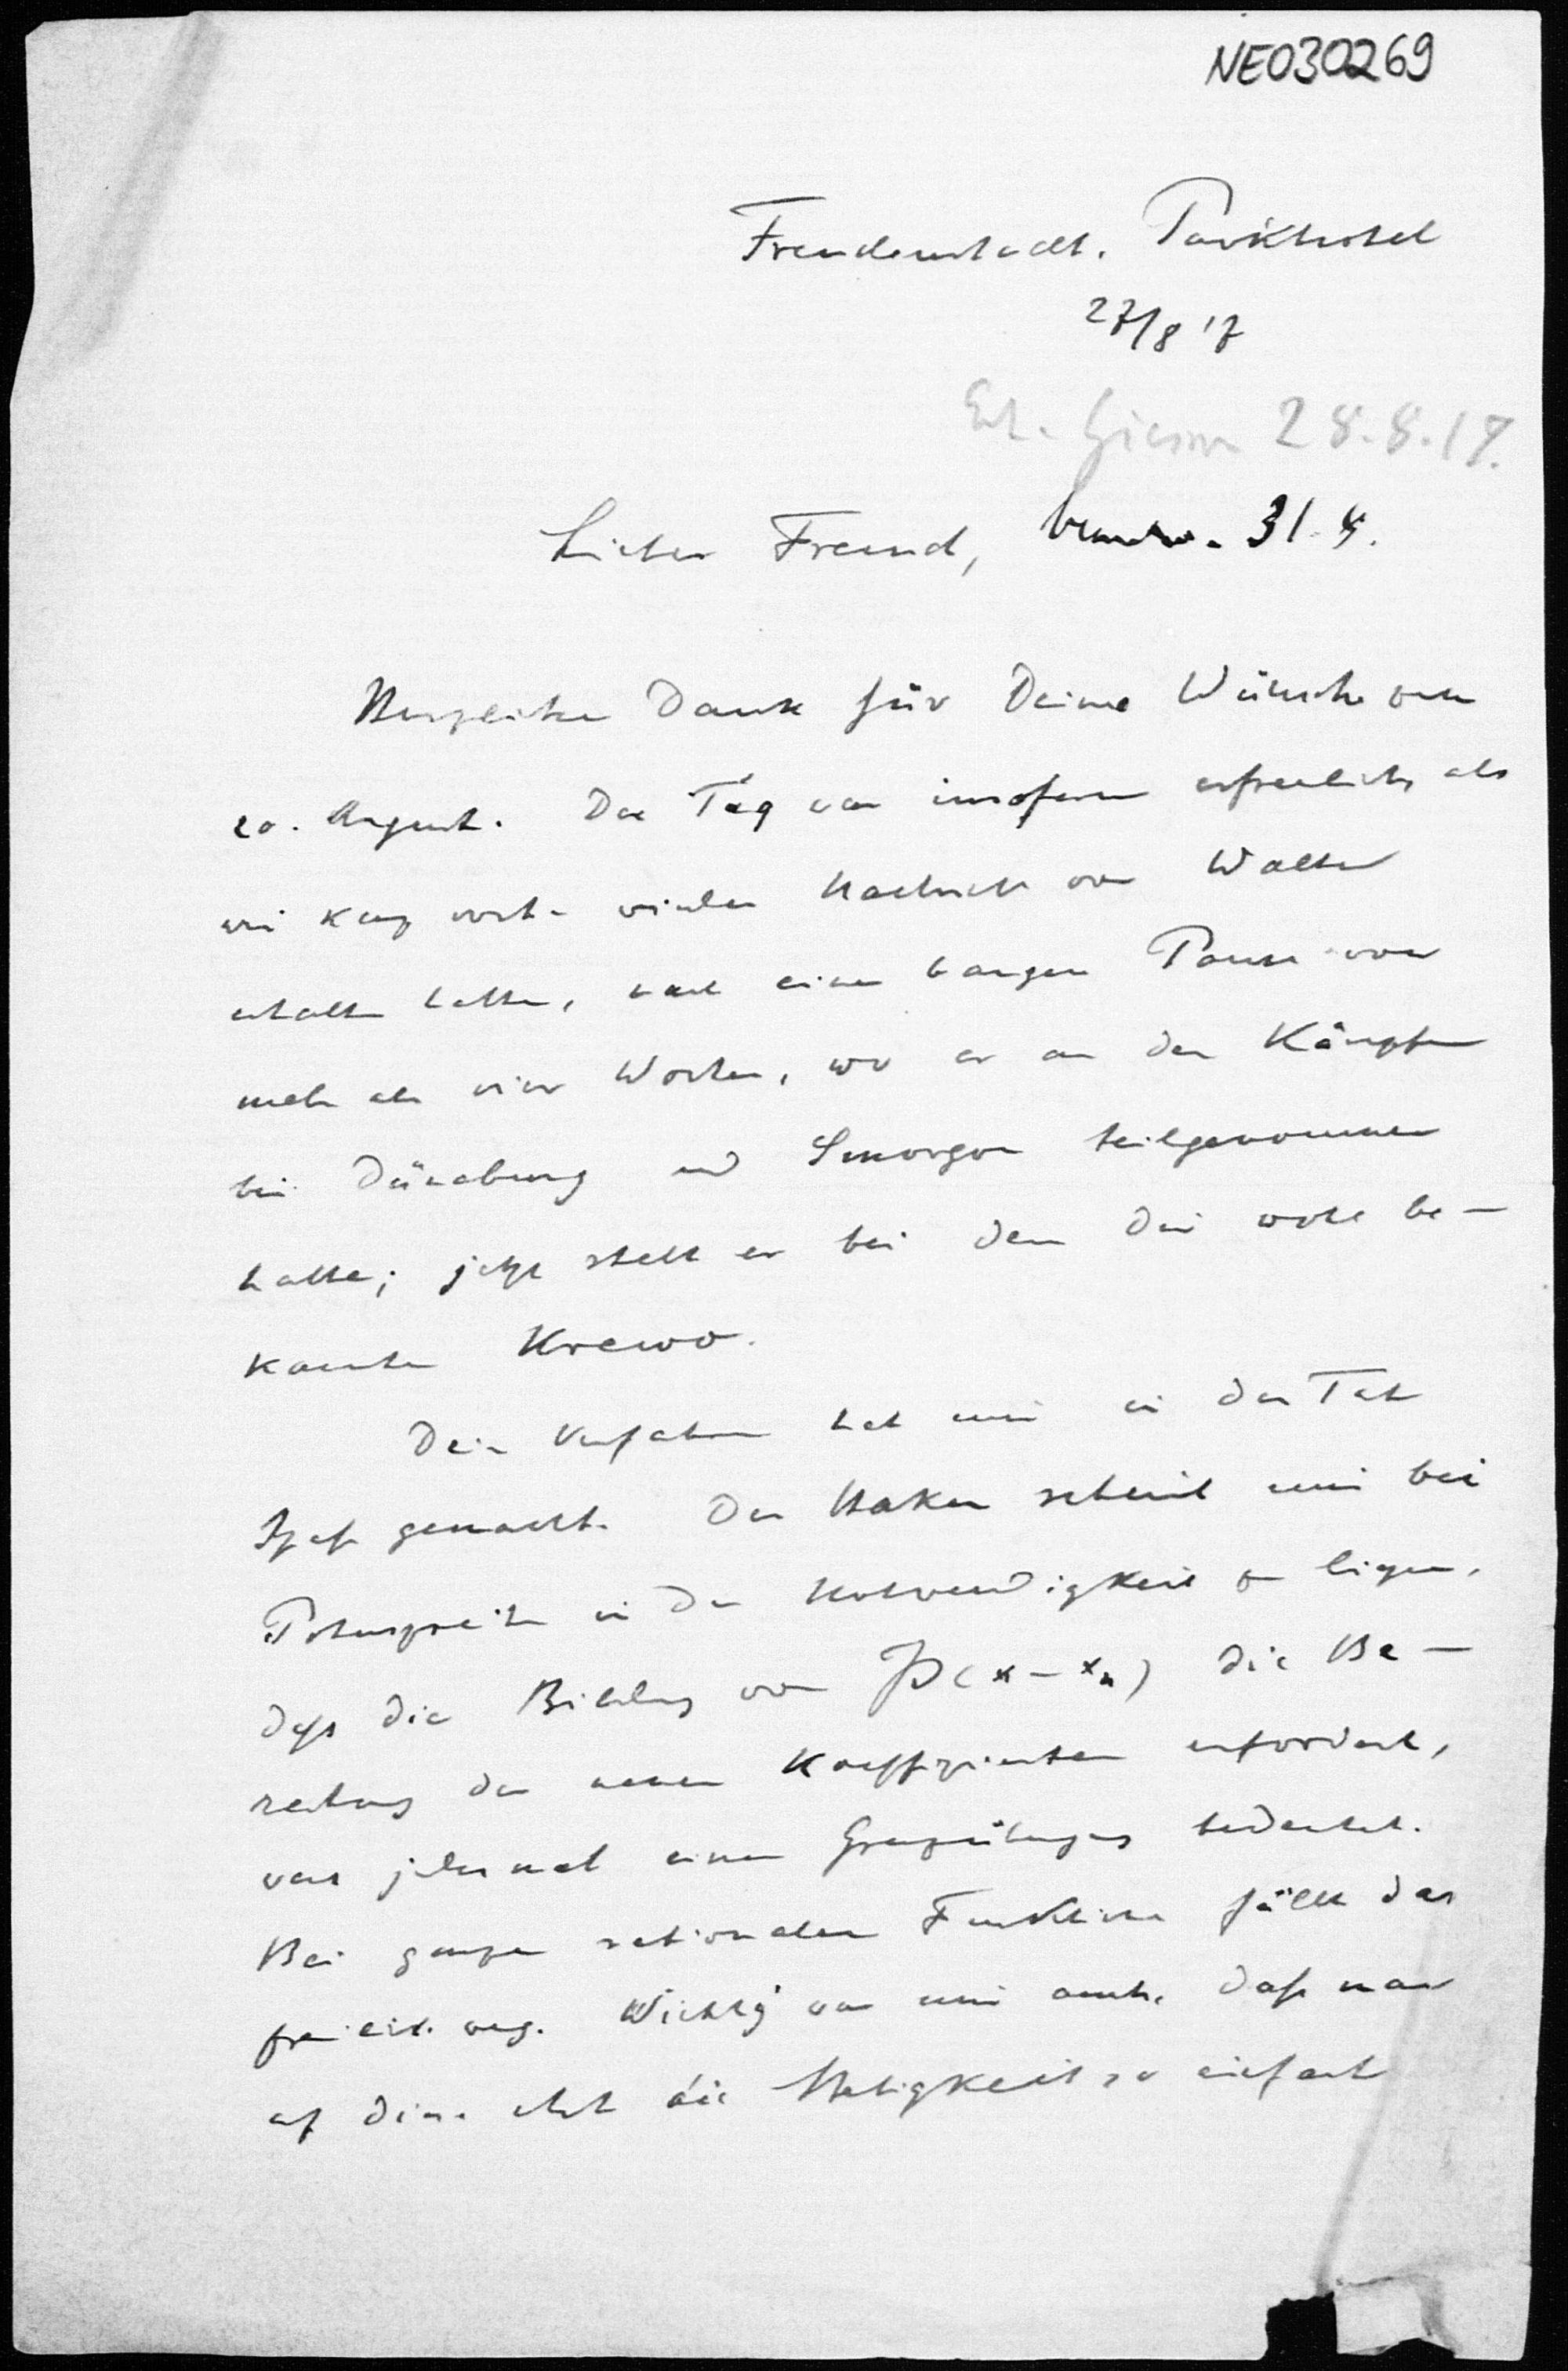 NE030269
Freudenstadt. Parkhotel
27/8 '17
Erh. Giessen 28.8.17.
Lieber Freund, beantw. 31.8.
Herzlichen Dank für Deine Wünsche vom
20. August. Der Tag war insofern erfreulich als
wir kurz vorher wieder Nachricht von Walter
erhalten hatten, nach einer bangen Pause von
mehr als vier Wochen, wo er an den Kämpfen
bei Dünaburg und Smorgon teilgenommen
hatte; jetzt steht er bei dem Dir wohl be-
kannten Krewo.
Dein Verfahren hat mir in der Tat
Spaß gemacht. Der Haken scheint mir bei
Potenzreihen in der Notwendigkeit zu liegen,
daß die Bildung von P(x-xn) die Be-
rechnung der neuen Koeffizienten erfordert,
was jedesmal einen Grenzübergang bedeutet.
Bei ganzen rationalen Funktionen fällt das
freilich weg. Wichtig war mir auch, daß man
auf diese Art die Stetigkeit so einfach